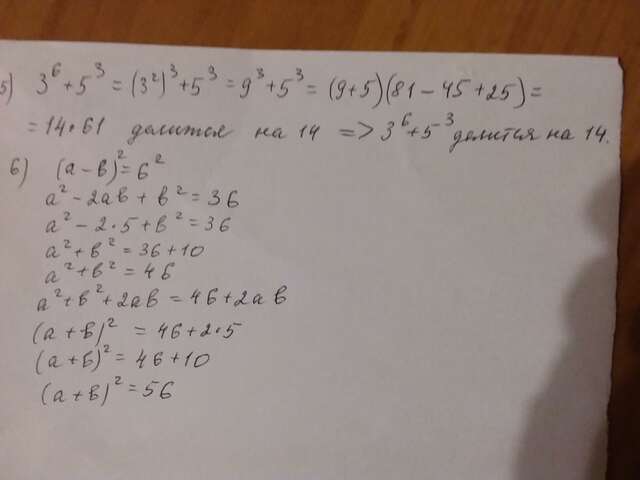 5) 3⁶+5³ = (3²)³+5³ = 9³+5³ = (9+5)(81-45+25) =
= 14•61 делится на 14 => 3⁶+5³ делится на 14.
6) (a-в)² = 6²
a²-2aв+в² = 36
a²-2•5+в² = 36
a²+в² = 36+10
a²+в² = 46
a²+в²+2aв = 46+2aв
(a+в)² = 46+2•5
(a+в)² = 46+10
(a+в)² = 56